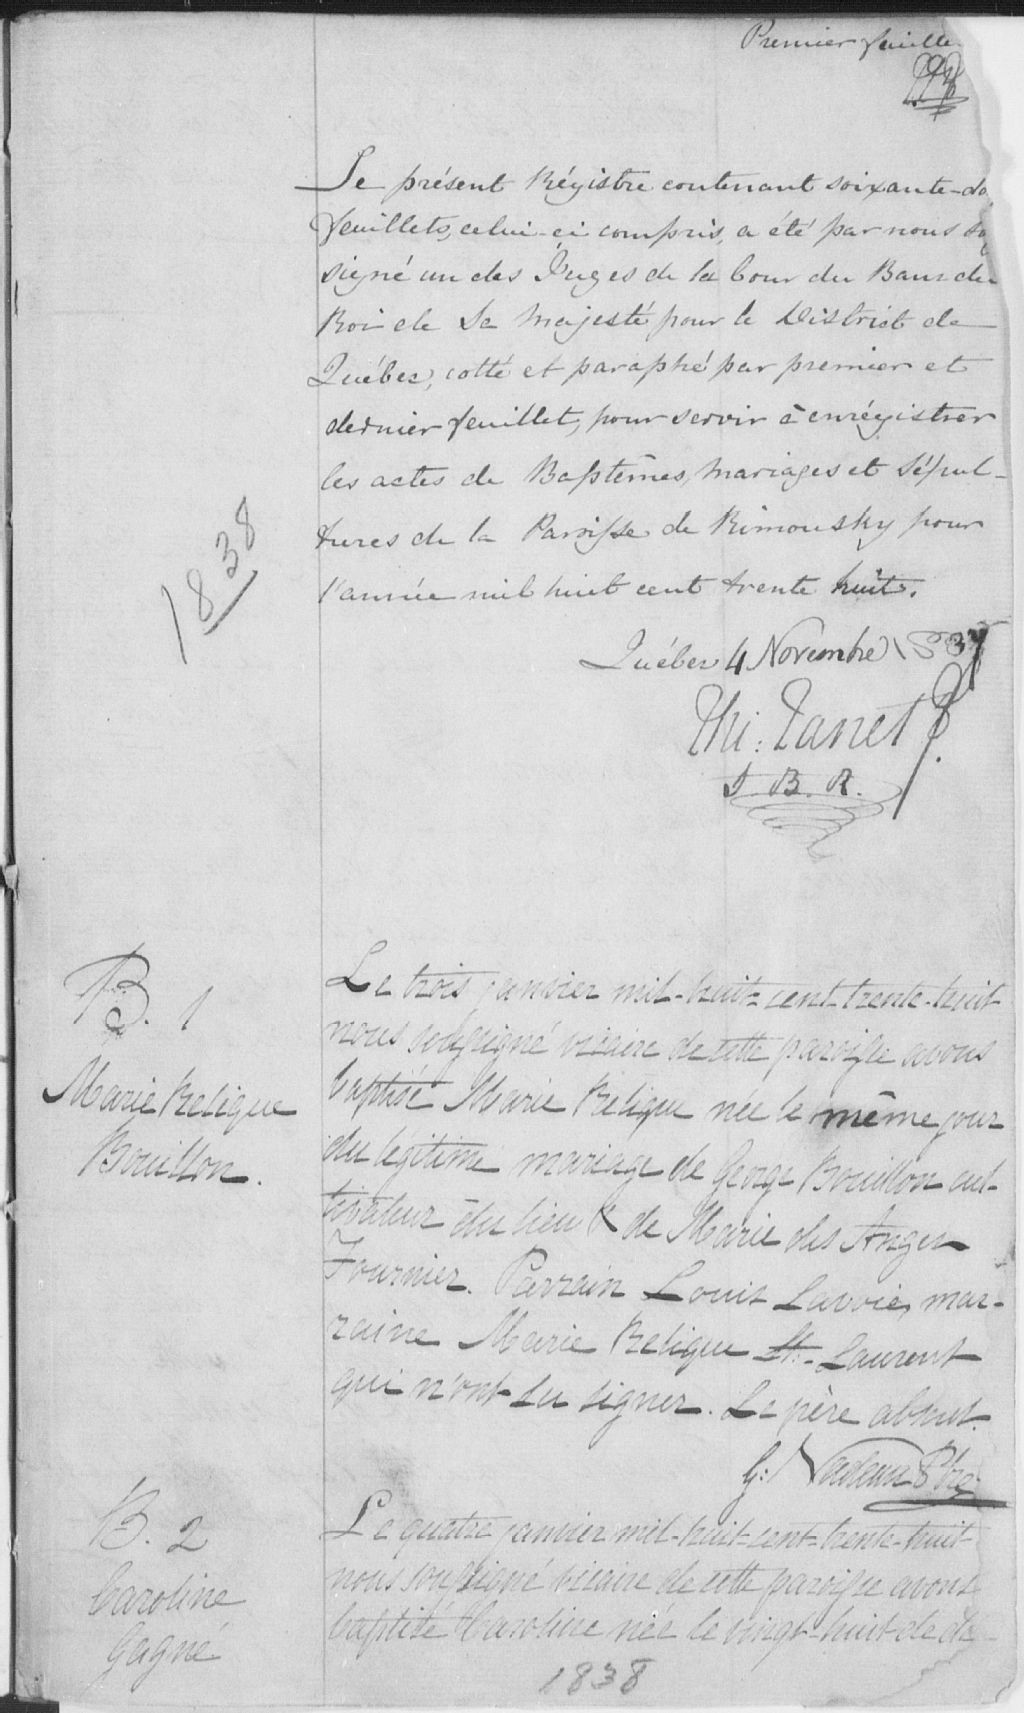 Premier feuille
Le présent Régistre contenant soixante-do
feuillets, celui-ci compris, a été par nous so
signé un des Juges de la Cour du Banc du
Roi de Sa Majesté pour le District de
Québec, cotté et paraphé par premier et
dernier feuillet, pour servir à enrégistrer
les actes de Baptêmes, Mariages et Sépul-
tures de la Paroisse de Rimousky pour
l'année mil huit cent trente huit.
1838
Québec 4 Novembre 1837
J. B. R.
B. 1
Marie Relique
Bouillon.
Le trois janvier mil-huit-cent-trente-huit
nous soussigné vicaire de cette paroisse avons
baptisé Marie Relique née le même jour
du légitime mariage de George Bouillon cul-
tivateur du lieu & de Marie des Anges
Fournier. Parrain Louis Lavoie, mar-
raine Marie Relique St.-Laurent
qui n'ont su signer. Le père absent.
G: Nadeau Ptre
B. 2
Caroline
Gagné
Le quatre janvier mil-huit-cent-trente-huit
nous soussigné vicaire de cette paroisse avons
baptisé Caroline née le vingt-huit de dé
1838